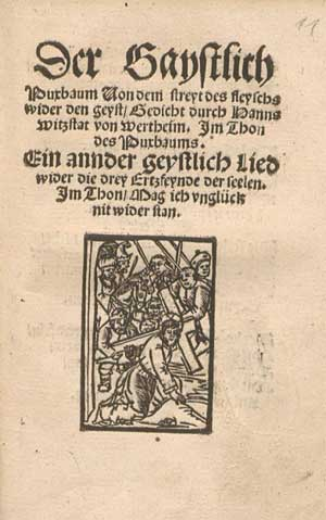 11
Der Gaystlich
Buxbaum Von dem streyt des fleyschs
wider den geyst / Gedicht durch Hanns
Witzstat von Wertheim. Im Thon
des Buxbaums.
Ein annder geystlich Lied
wider die drey Ertzfeynde der seelen.
Im Thon / Mag ich vnglück
nit wider stan.